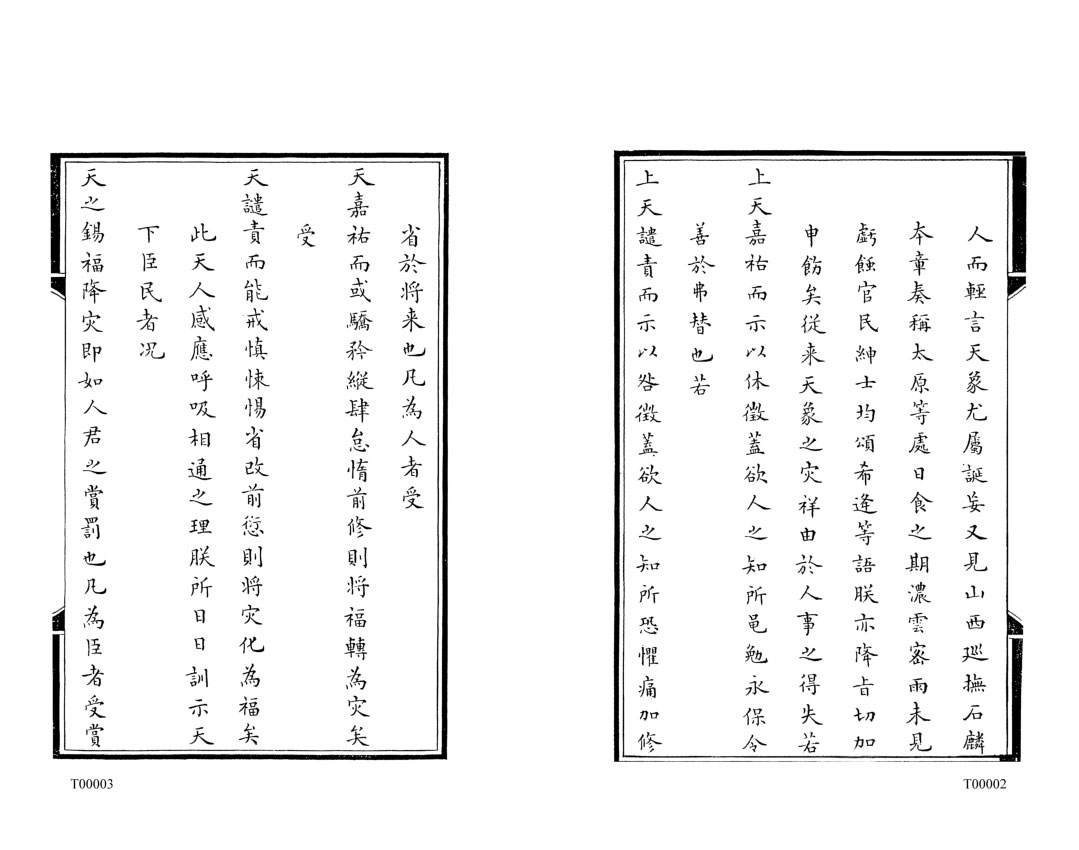 人而輕言天象尤屬誕妄又見山西廵撫石麟
本章奏稱太原等處日食之期濃雲宻雨未見
虧蝕官民紳士均頌希逄等語朕亦降㫖切加
申飭矣從来天象之灾祥由於人事之得失若
上天嘉祐而示以休徵蓋欲人之知所黽勉永保令
善於弗替也若
上天譴責而示以咎徵蓋欲人之知所恐懼痛加修
T00002
省於将来也凡為人者受
天嘉祐而或驕矜縱肆怠惰前修則将福轉為灾矣
受
天譴責而能戒慎悚惕省改前愆則将灾化為福矣
此天人感應呼吸相通之理朕所日日訓示天
下臣民者况
天之錫福降灾即如人君之賞罰也凡為臣者受賞
T00003